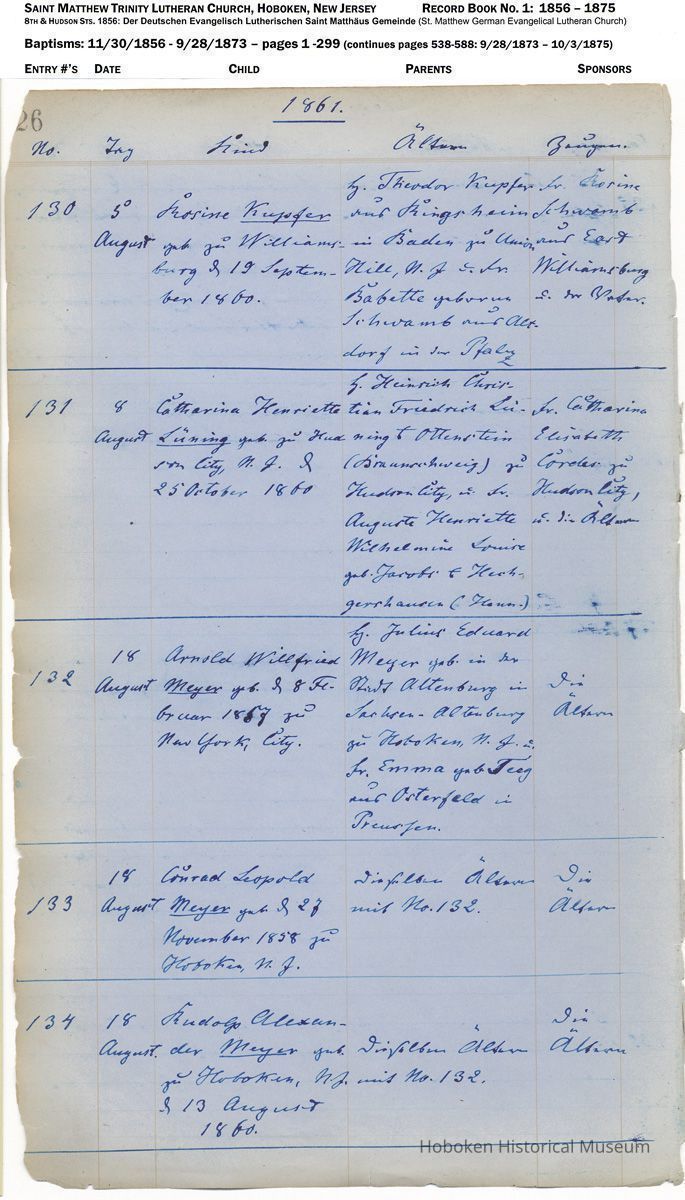 SAINT MATTHEW TRINITY LUTHERAN CHURCH, HOBOKEN, NEW JERSEY RECORD BOOK NO. 1: 1856 – 1875
8TH & HUDSON STS. 1856: Der Deutschen Evangelisch Lutherischen Saint Matthäus Gemeinde (St. Matthew German Evangelical Lutheran Church)
Baptisms: 11/30/1856 - 9/28/1873 – pages 1 -299 (continues pages 538-588: 9/28/1873 – 10/3/1875)
ENTRY #'S DATE CHILD PARENTS SPONSORS
26
1861.
No. Tag Kind Ältern Zeugen.
130
5
August
Rosine Kupfer
geb. zu Williams-
burg d 19 Septem-
ber 1860.
H. Theodor Kupfer
aus Ringsheim
in Baden zu Union
Hill, N. J u. Fr.
Babette geboren
Schwamb aus Alt-
dorf in der Pfalz
Fr. Rosine
Schwamb
aus East
Williamsburg
u. der Vater.
131
8
August
Catharina Henriette
Lüning geb. zu Hud
son City, N. J. d
25 October 1860
H. Heinrich Chris-
tian Friedrich Lü-
ning Ottenstein
(Braunschweig) zu
Hudson City, u. Fr.
Auguste Henriette
Wilhelmine Louise
geb. Jacobs
(Hann.)
Fr. Catharina
Elisabeth
Cordes zu
Hudson City,
u. die Ältern
132
18
August
Arnold Willfried
Meyer geb. d 8 Fe-
bruar 1857 zu
New York, City.
H. Julius Eduard
Meyer geb. in der
Stadt Altenburg in
Sachsen-Altenburg
zu Hoboken, N. J. u.
Fr. Emma geb. Teeg
aus Osterfeld in
Preussen.
Die
Ältern
133
18
August
Conrad Leopold
Meyer geb. d 27
November 1858 zu
Hoboken, N. J.
Dieselben Ältern
mit No. 132.
Die
Ältern
134
18
August.
Rudolf Alexan-
der Meyer geb.
zu Hoboken, N.J.
d 13 August
1860.
Dieselben Ältern
mit No. 132.
Die
Ältern
Hoboken Historical Museum